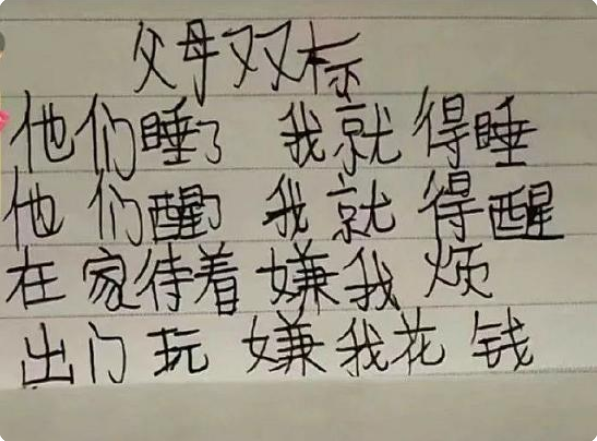 父母双标
他们睡了 我就得睡
他们醒了 我就得醒
在家待着 嫌我烦
出门玩 嫌我花钱